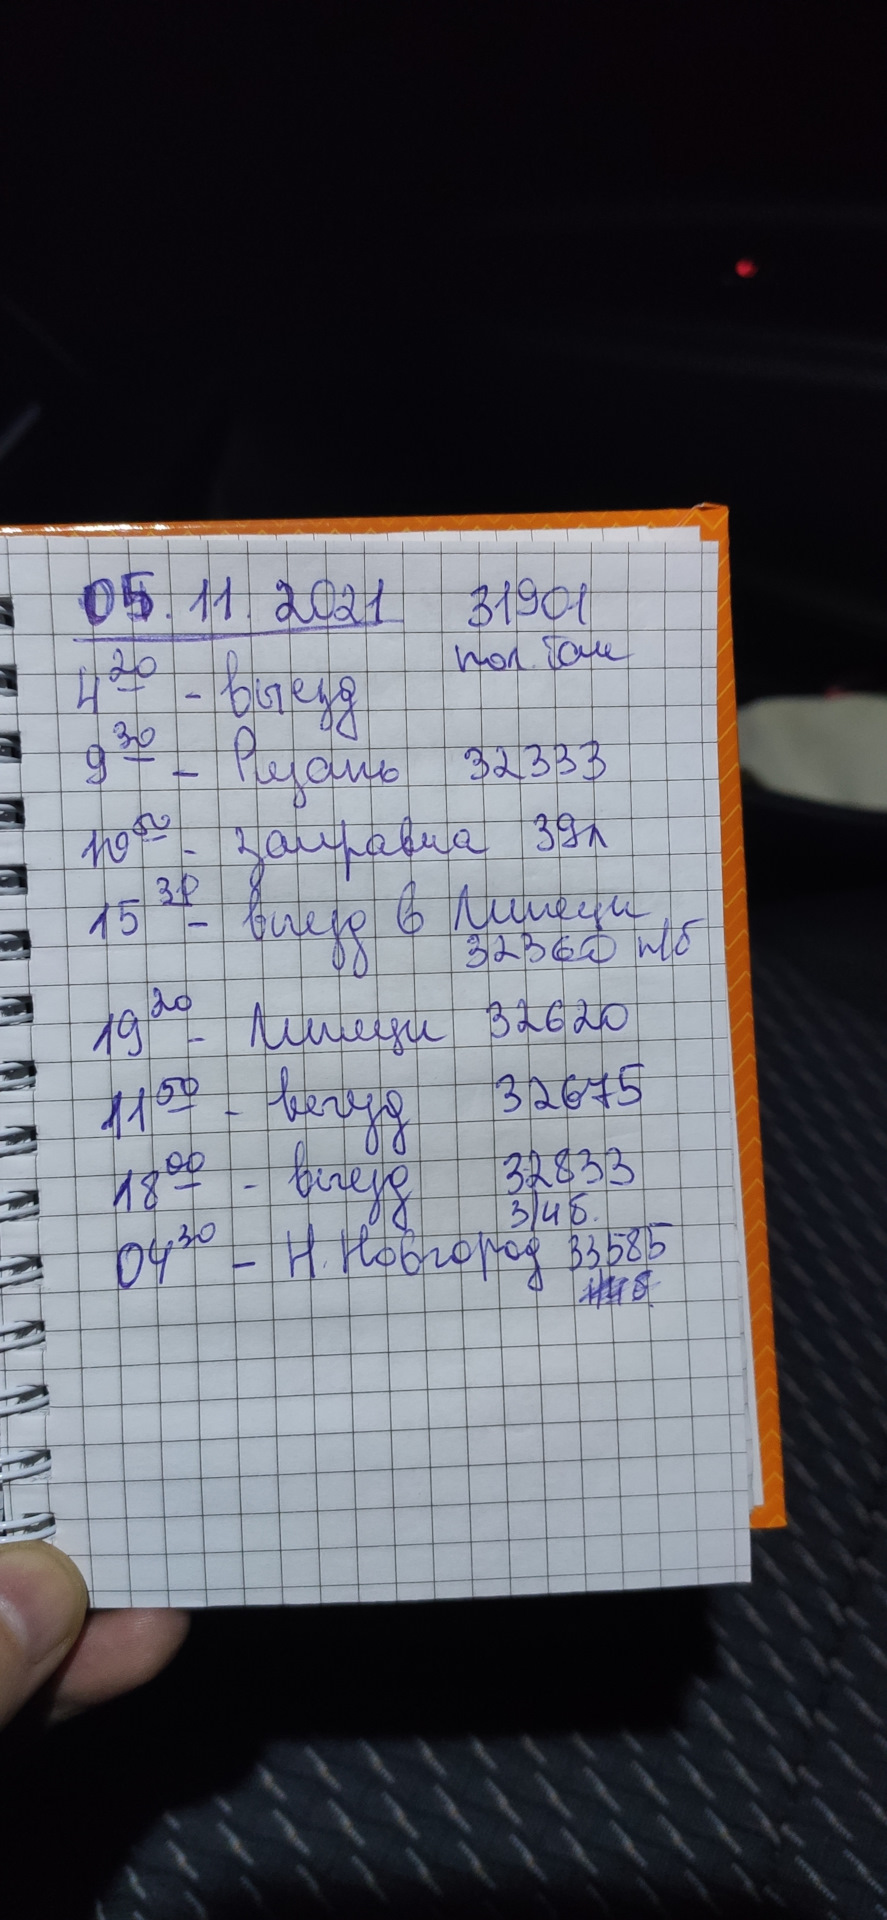 05.11.2021 31901
пол. бак
4 20 - выезд
9 30 - Рязань 32333
10 50 - заправка 39л
15 30 - выезд в Липецк
32360 п/б
19 20 - Липецк 32620
11 50 - выезд 32675
18 00 - выезд 32833
3/4 б.
04 30 - Н.Новгород 33585